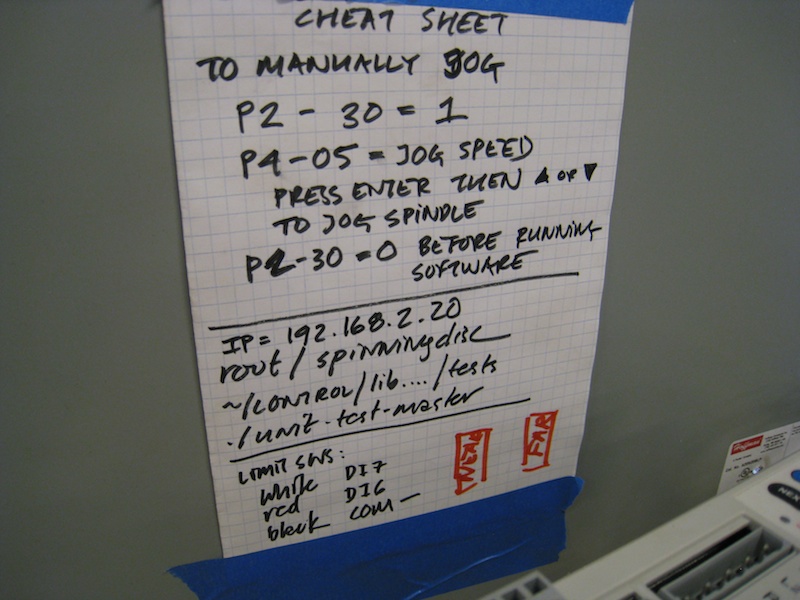 CHEAT SHEET
TO MANUALLY JOG
P2 - 30 = 1
P4-05 = JOG SPEED
PRESS ENTER THEN ▲ or ▼
TO JOG SPINDLE
P2-30=0 BEFORE RUNNING
SOFTWARE
IP= 192.168.2.20
root/spinningdisc
~/CONTROL/lib..../tests
./unit-test-master
LIMIT SWS:
white DI7
red DI6
black COM -
NEAR
FAR
NEX